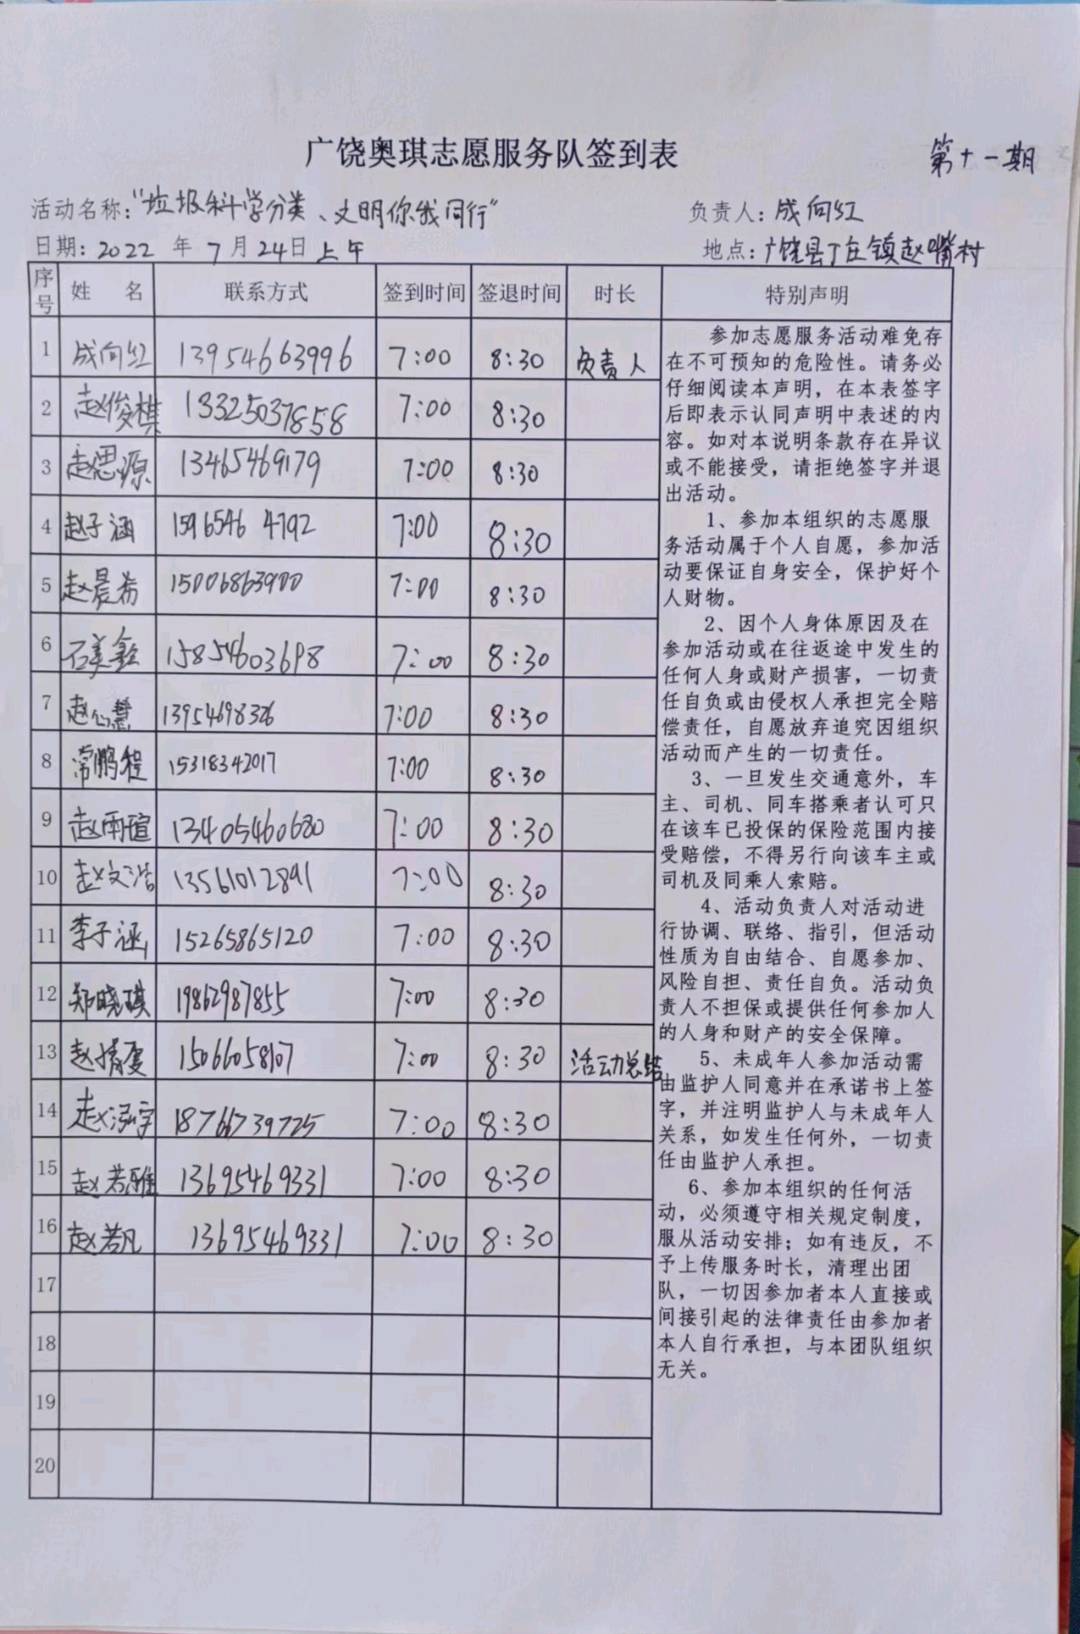 广饶奥琪志愿服务队签到表
第十一期
活动名称：“垃圾科学分类、文明你我同行” 负责人：成向红
日期：2022 年 7 月 24 日 上午 地点：广饶县丁庄镇赵嘴村
序号 姓 名 联系方式 签到时间 签退时间 时长 特别声明
1 成向红 13954663996 7:00 8:30 负责人
2 赵俊棋 13325037858 7:00 8:30
3 赵思源 13465469179 7:00 8:30
4 赵子涵 15965464792 7:00 8:30
5 赵晨希 15006863900 7:00 8:30
6 石美鑫 15854603698 7:00 8:30
7 赵心慧 13954698326 7:00 8:30
8 常鹏程 15318342017 7:00 8:30
9 赵雨暄 13405460680 7:00 8:30
10 赵文浩 13561012891 7:00 8:30
11 李子涵 15265865120 7:00 8:30
12 郑晓琪 19862987855 7:00 8:30
13 赵婧雯 15066058107 7:00 8:30 活动总结
14 赵泓宇 18766739725 7:00 8:30
15 赵若雅 13695469331 7:00 8:30
16 赵若凡 13695469331 7:00 8:30
17
18
19
20
参加志愿服务活动难免存
在不可预知的危险性。请务必
仔细阅读本声明，在本表签字
后即表示认同声明中表述的内
容。如对本说明条款存在异议
或不能接受，请拒绝签字并退
出活动。
1、参加本组织的志愿服
务活动属于个人自愿，参加活
动要保证自身安全，保护好个
人财物。
2、因个人身体原因及在
参加活动或在往返途中发生的
任何人身或财产损害，一切责
任自负或由侵权人承担完全赔
偿责任，自愿放弃追究因组织
活动而产生的一切责任。
3、一旦发生交通意外，车
主、司机、同车搭乘者认可只
在该车已投保的保险范围内接
受赔偿，不得另行向该车主或
司机及同乘人索赔。
4、活动负责人对活动进
行协调、联络、指引，但活动
性质为自由结合、自愿参加、
风险自担、责任自负。活动负
责人不担保或提供任何参加人
的人身和财产的安全保障。
5、未成年人参加活动需
由监护人同意并在承诺书上签
字，并注明监护人与未成年人
关系，如发生任何外，一切责
任由监护人承担。
6、参加本组织的任何活
动，必须遵守相关规定制度，
服从活动安排；如有违反，不
予上传服务时长，清理出团
队，一切因参加者本人直接或
间接引起的法律责任由参加者
本人自行承担，与本团队组织
无关。